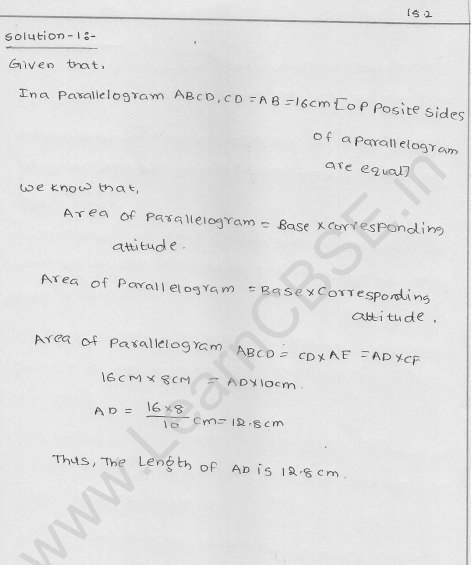 15.2
Solution-1:-
Given that,
In a Parallelogram ABCD, CD = AB = 16cm [opposite sides
of a parallelogram
are equal]
We know that,
Area of Parallelogram = Base x corresponding
attitude.
Area of Parallelogram = Base x Corresponding
attitude.
Area of Parallelogram ABCD = CD x AE = AD x CF
16CM x 8CM = AD x 10cm.
AD = 16x8/10 cm = 12.8cm
Thus, The Length of AD is 12.8 cm.
www.LearnCBSE.in